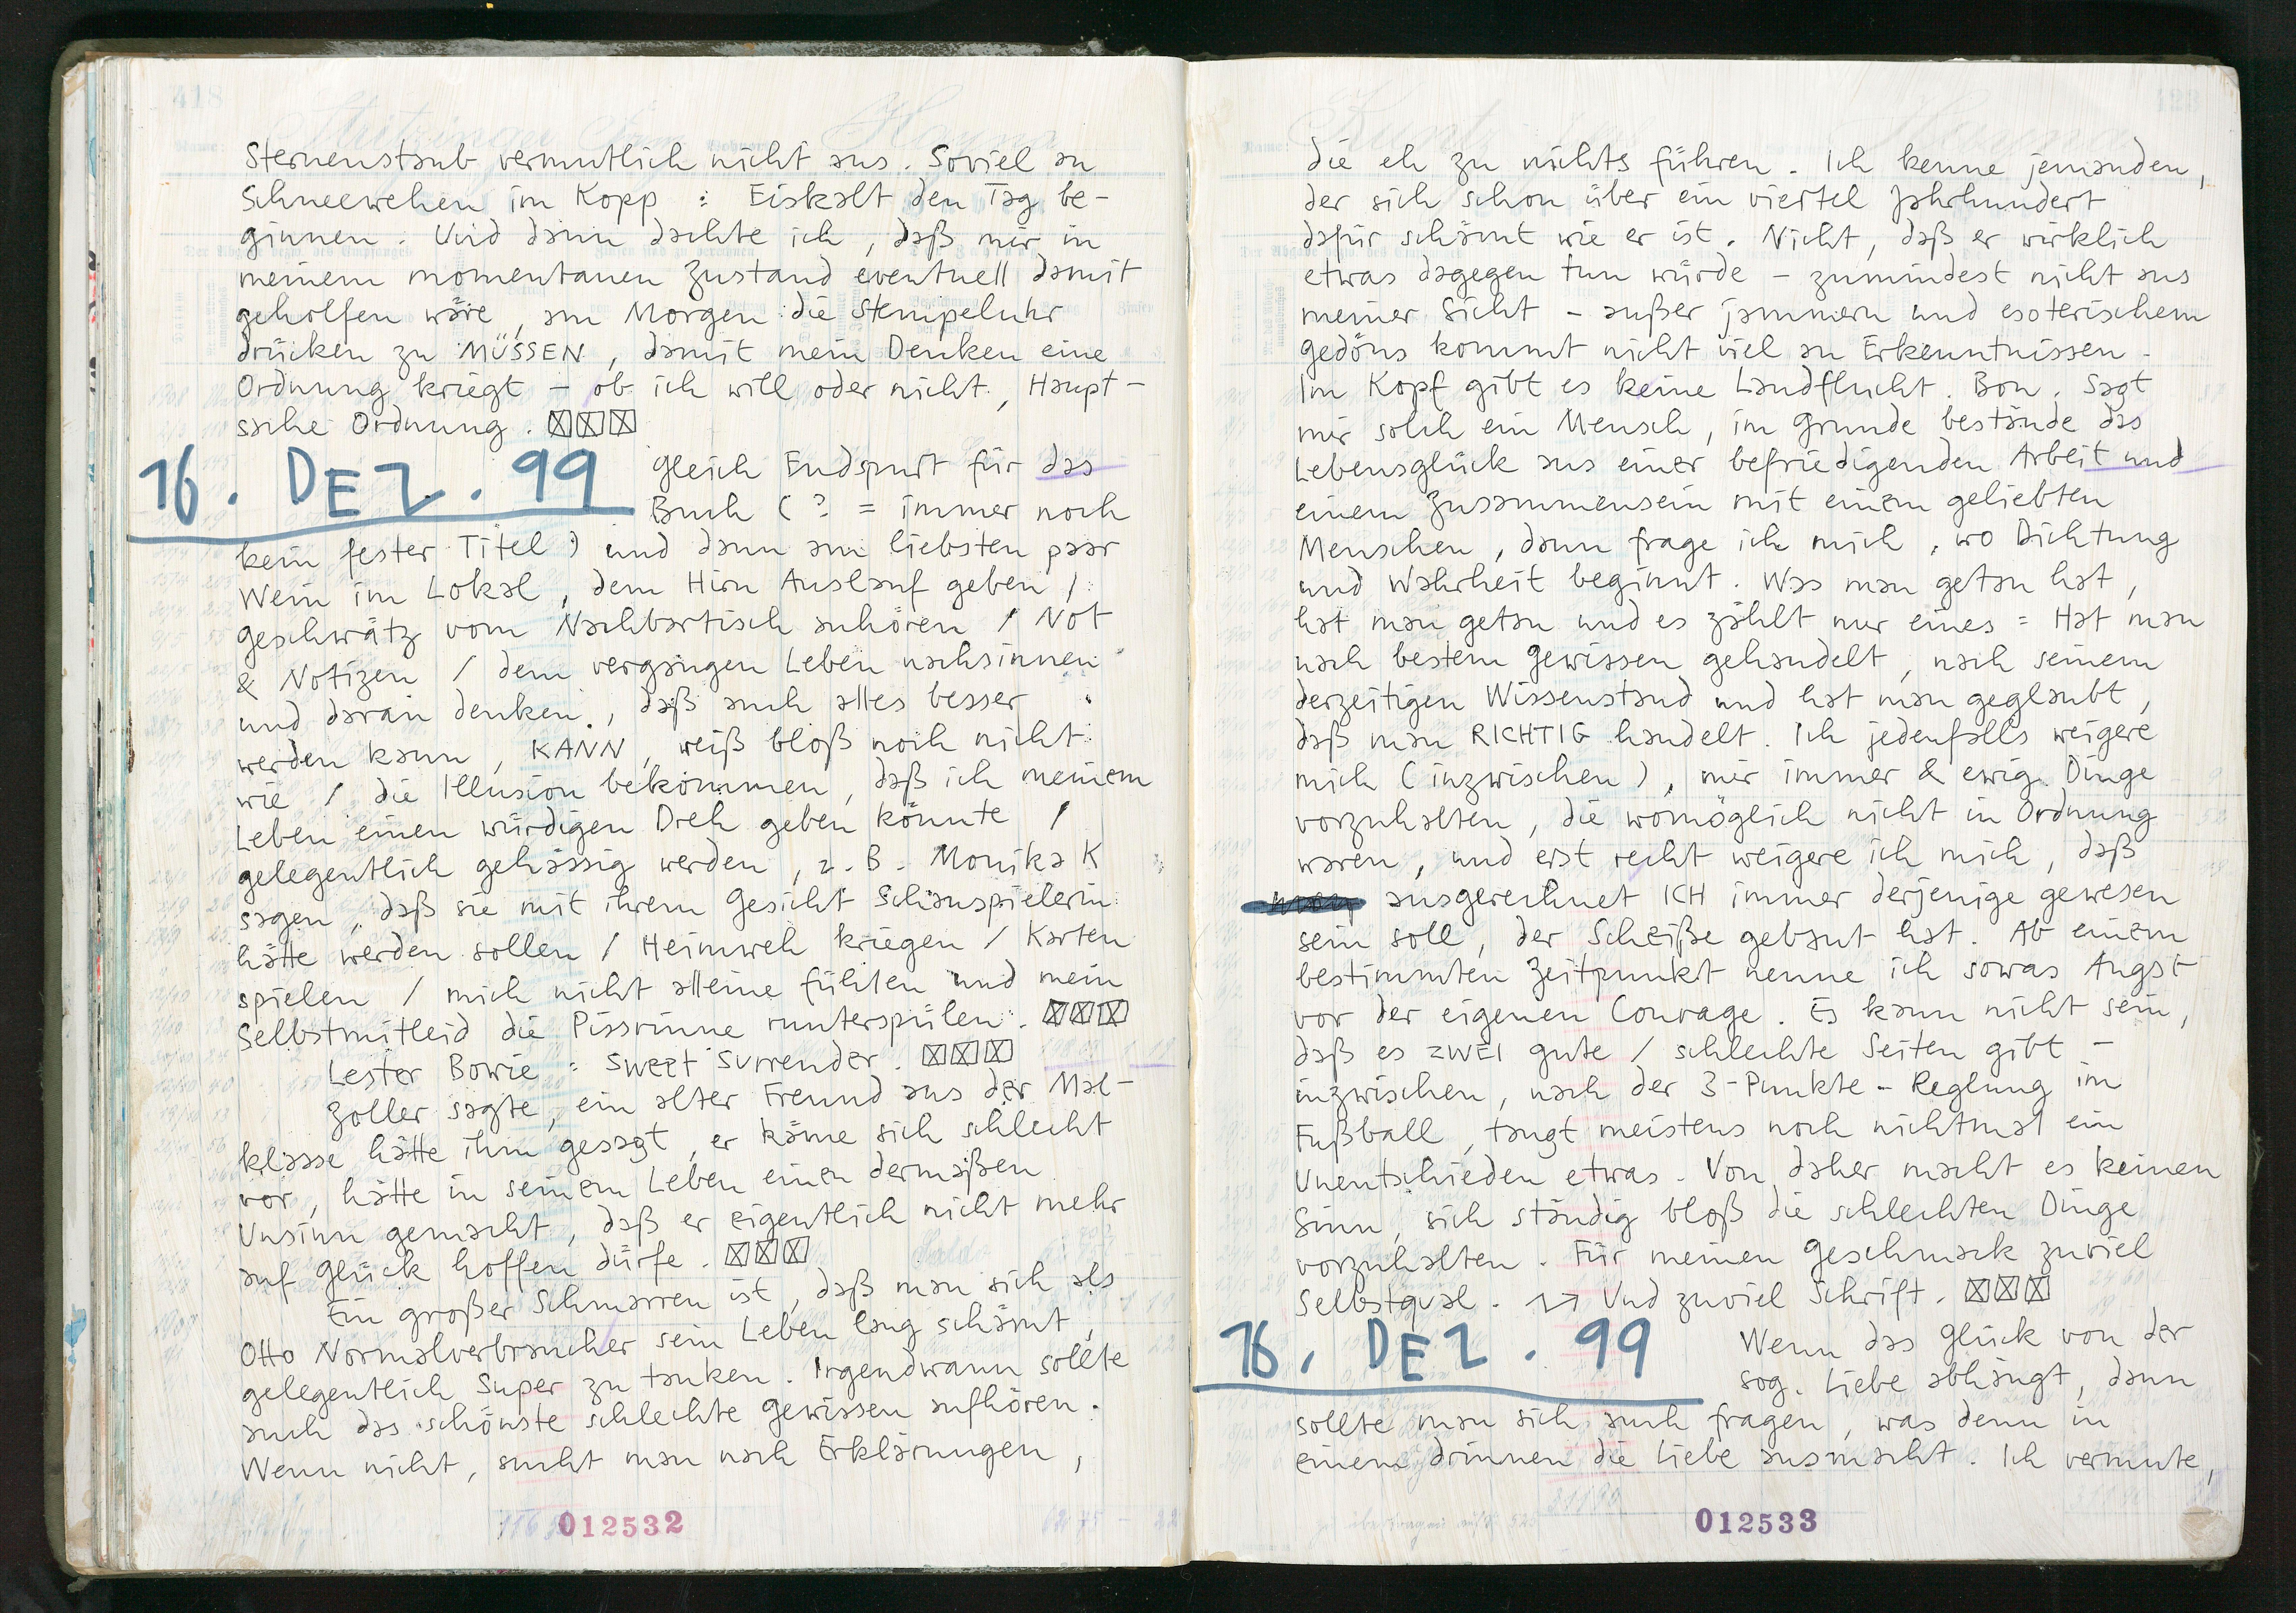 Sternenstaub vermutlich nicht aus. Soviel an
Schneewehen im Kopp : Eiskalt den Tag be-
ginnen. Und dann dachte ich, daß mir in
meinem momentanen Zustand eventuell damit
geholfen wäre, am Morgen die Stempeluhr
drücken zu MÜSSEN, damit mein Denken eine
Ordnung kriegt - ob ich will oder nicht, Haupt-
sache Ordnung. ☒☒☒
16. DEZ. 99
Gleich Endspurt für das
Buch (? = immer noch
kein fester Titel) und dann am liebsten paar
Wein im Lokal, dem Hirn Auslauf geben /
Geschwätz vom Nachbartisch anhören / Not
& Notizen / dem vergangen Leben nachsinnen
und daran denken, daß auch alles besser
werden kann, KANN, weiß bloß noch nicht
wie / die Illusion bekommen, daß ich meinem
Leben einen würdigen Dreh geben könnte /
gelegentlich gehässig werden, z.B. Monika K
sagen, daß sie mit ihrem Gesicht Schauspielerin
hätte werden sollen / Heimweh kriegen / Karten
spielen / mich nicht alleine fühlen und mein
Selbstmitleid die Pissrinne runterspülen. ☒☒☒
Lester Bowie : Sweet Surrender. ☒☒☒
Zoller sagte, ein alter Freund aus der Mal-
klasse hätte ihm gesagt, er käme sich schlecht
vor, hätte in seinem Leben einen dermaßen
Unsinn gemacht, daß er eigentlich nicht mehr
auf Glück hoffen dürfe. ☒☒☒
Ein großer Schmarren ist, daß man sich als
Otto Normalverbraucher sein Leben lang schämt,
gelegentlich Super zu tanken. Irgendwann sollte
auch das schönste schlechte Gewissen aufhören.
Wenn nicht, sucht man nach Erklärungen,
012532
die eh zu nichts führen. Ich kenne jemanden,
der sich schon über ein viertel Jahrhundert
dafür schämt wie er ist. Nicht, daß er wirklich
etwas dagegen tun würde - zumindest nicht aus
meiner Sicht - außer jammern und esoterischem
Gedöns kommt nicht viel an Erkenntnissen.
Im Kopf gibt es keine Landflucht. Bon. Sagt
mir solch ein Mensch, im Grunde bestände das
Lebensglück aus einer befriedigenden Arbeit und
einem Zusammensein mit einem geliebten
Menschen, dann frage ich mich, wo Dichtung
und Wahrheit beginnt. Was man getan hat,
hat man getan und es zählt nur eines = Hat man
nach bestem Gewissen gehandelt, nach seinem
derzeitigen Wissenstand und hat man geglaubt,
daß man RICHTIG handelt. Ich jedenfalls weigere
mich (inzwischen), mir immer & ewig Dinge
vorzuhalten, die womöglich nicht in Ordnung
waren, und erst recht weigere ich mich, daß
ausgerechnet ICH immer derjenige gewesen
sein soll, der Scheiße gebaut hat. Ab einem
bestimmten Zeitpunkt nenne ich sowas Angst
vor der eigenen Courage. Es kann nicht sein,
daß es ZWEI gute / schlechte Seiten gibt -
inzwischen, nach der 3-Punkte-Reglung im
Fußball, taugt meistens noch nichtmal ein
Unentschieden etwas. Von daher macht es keinen
Sinn, sich ständig bloß die schlechten Dinge
vorzuhalten. Für meinen Geschmack zuviel
Selbstqual. Und zuviel Schrift. ☒☒☒
16. DEZ. 99
Wenn das Glück von der
sog. Liebe abhängt, dann
sollte man sich auch fragen, was denn in
einem drinnen die Liebe ausmacht. Ich vermute,
012533